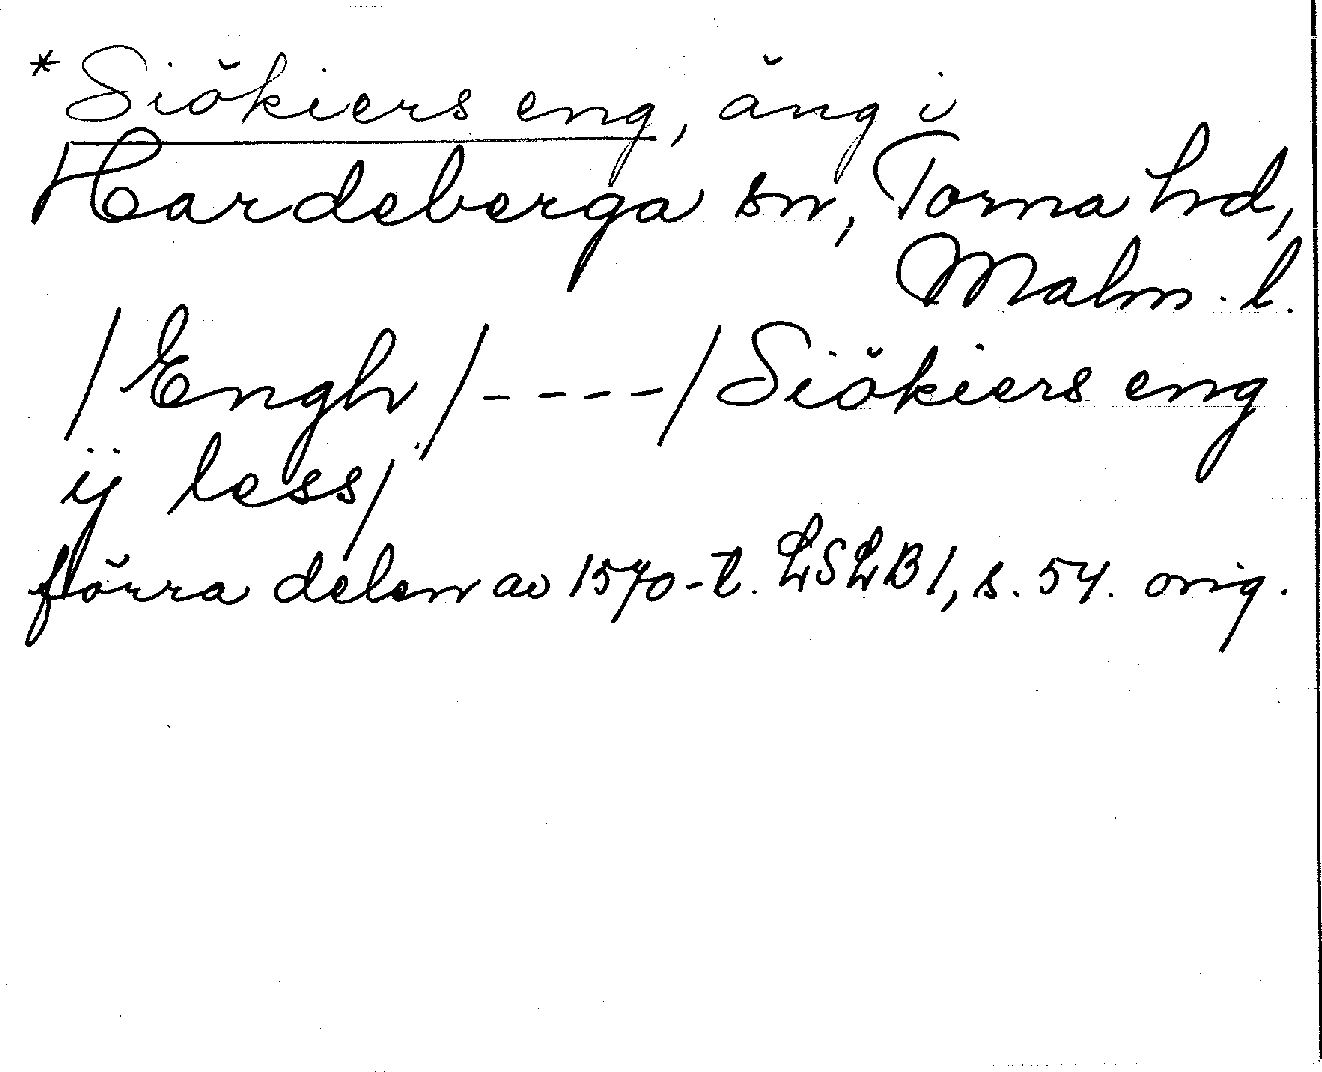 * Siökiers eng, äng i
Hardeberga sn, Torna hd,
Malm. l.
/Engh/----/Siökiers eng
ij less/
förra delen av 1570-t. LSLB 1, s. 54. orig.